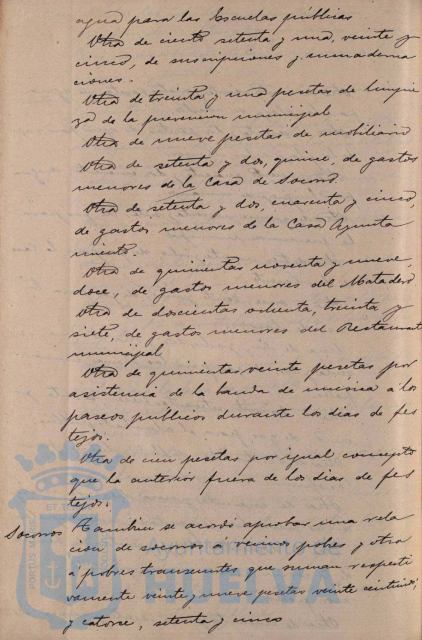 agua para las Escuelas públicas
Otra de ciento setenta y una, veinte y
cinco, de suscripciones y encuaderna
ciones.
Otra de treinta y una pesetas de limpie
za de la prevencion municipal
Otra de nueve pesetas de mobiliario
Otra de setenta y dos, quince, de gastos
menores de la Casa de Socorro.
Otra de setenta y dos, cuarenta y cinco,
de gastos menores de la Casa Ayunta
miento.
Otra de quinientas noventa y nueve,
doce, de gastos menores del Matadero
Otra de doscientas ochenta, treinta y
siete, de gastos menores del
municipal
Otra de quinientas veinte pesetas por
asistencia de la banda de música á los
paseos publicos durante los dias de fes
tejos.
Otra de cien pesetas por igual concepto
que la anterior fuera de los dias de fes
tejos.
Socorros Tambien se acordó aprobar una rela
cion de socorros á vecinos pobres y otra
á pobres transeuntes que suman respecti
vamente veinte y nueve pesetas veinte centimos,
y catorce, setenta y cinco
Ayuntamiento de
HUELVA
PORTUS MARIS
ET TERRAE